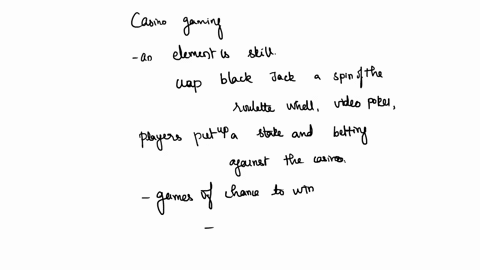 Casino gaming
- an element is skill.
black Jack a spin of the
roulette whell, video poker,
players put up a stake and betting
against the casinos.
- games of chance to win
-